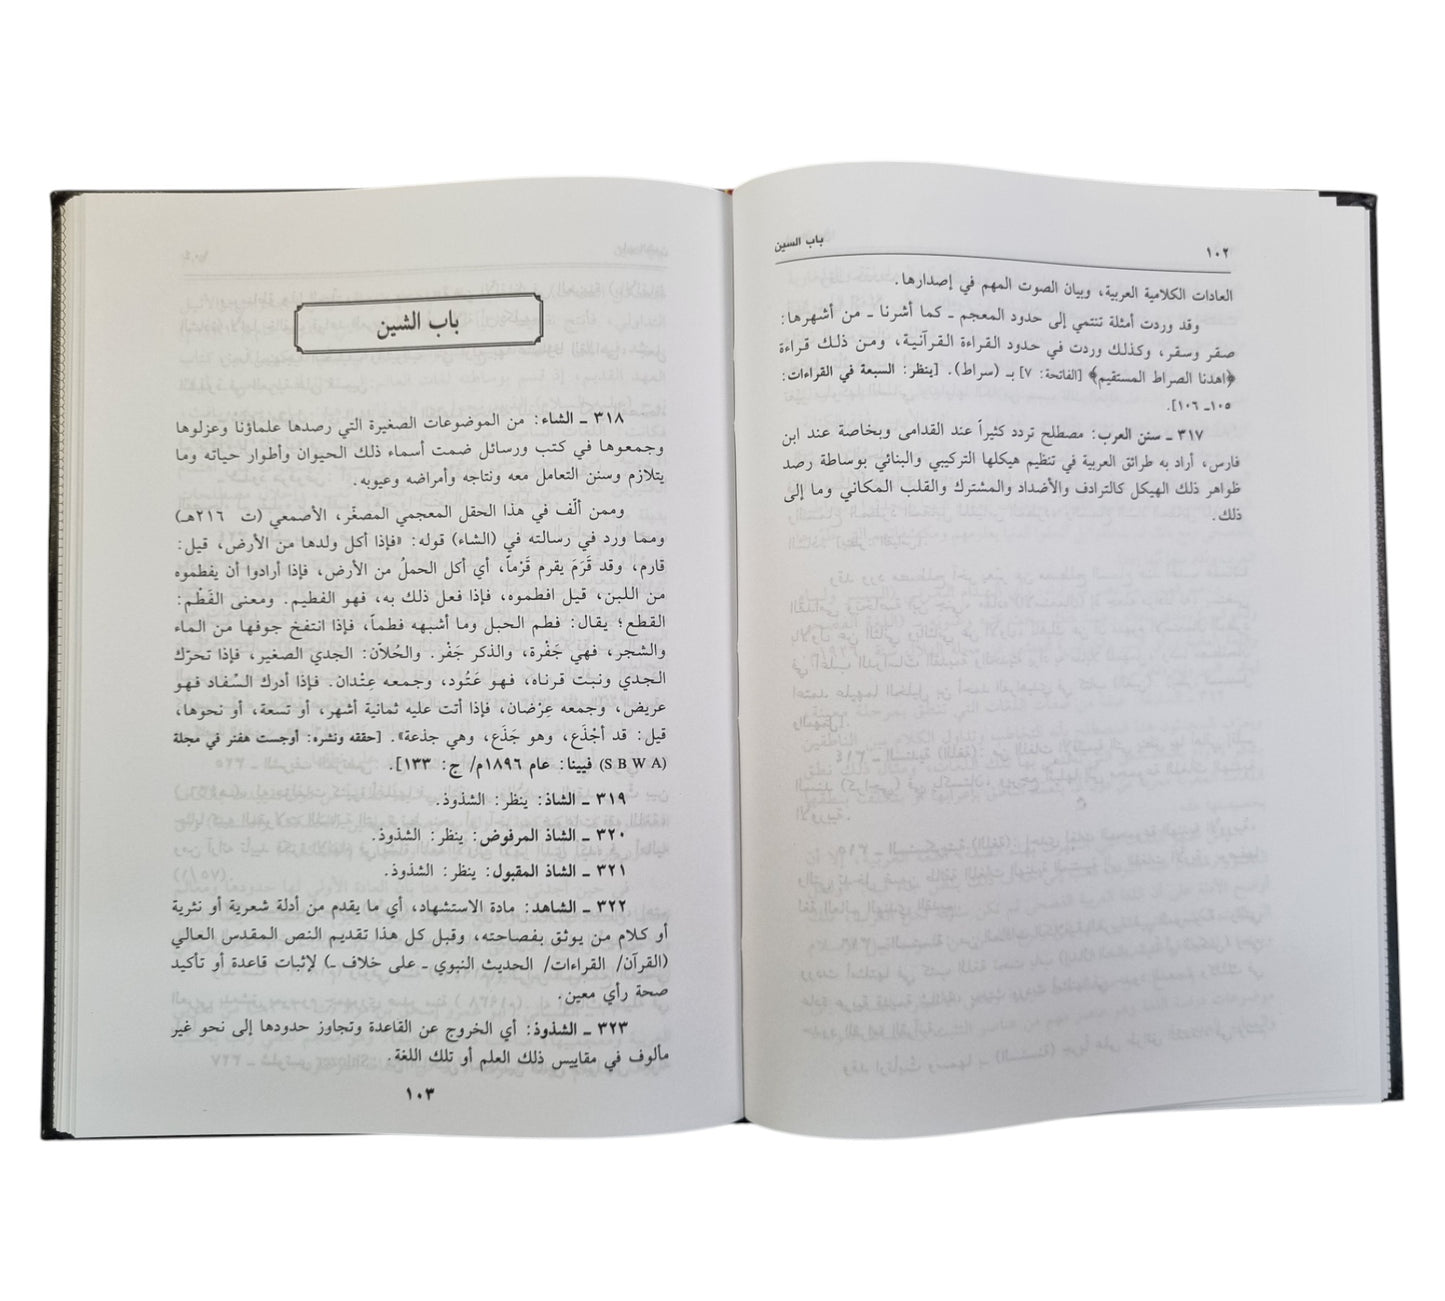 ١٠٢
باب السين
العادات الكلامية العربية، وبيان الصوت المهم في إصدارها.
وقد وردت أمثلة تنتمي إلى حدود المعجم ـ كما أشرنا ـ من أشهرها:
صقر وسقر، وكذلك وردت في حدود القراءة القرآنية، ومن ذلك قراءة
﴿اهدنا الصراط المستقيم﴾ [الفاتحة: ٧] بـ (سراط). [ينظر: السبعة في القراءات:
١٠٥ـ ١٠٦].
٣١٧ ـ سنن العرب: مصطلح تردد كثيراً عند القدامى وبخاصة عند ابن
فارس، أراد به طرائق العربية في تنظيم هيكلها التركيبي والبنائي بوساطة رصد
ظواهر ذلك الهيكل كالترادف والأضداد والمشترك والقلب المكاني وما إلى
ذلك.
باب الشين
٣١٨ ـ الشاء: من الموضوعات الصغيرة التي رصدها علماؤنا وعزلوها
وجمعوها في كتب ورسائل ضمت أسماء ذلك الحيوان وأطوار حياته وما
يتلازم وسنن التعامل معه ونتاجه وأمراضه وعيوبه.
وممن ألّف في هذا الحقل المعجمي المصغّر، الأصمعي (ت ٢١٦هـ)
ومما ورد في رسالته في (الشاء) قوله: «فإذا أكل ولدها من الأرض، قيل:
قارم، وقد قَرَمَ يقرم قَرْماً، أي أكل الحملُ من الأرض، فإذا أرادوا أن يفطموه
من اللبن، قيل افطموه، فإذا فعل ذلك به، فهو الفطيم. ومعنى الفَطْم:
القطع؛ يقال: فطم الحبل وما أشبهه فطماً، فإذا انتفخ جوفها من الماء
والشجر، فهي جَفْرة، والذكر جَفْر. والحُلاّن: الجدي الصغير، فإذا تحرّك
الجدي ونبت قرناه، فهو عَتُود، وجمعه عِتْدان. فإذا أدرك السُفاد فهو
عريض، وجمعه عِرْضان، فإذا أتت عليه ثمانية أشهر، أو تسعة، أو نحوها،
قيل: قد أجْذَع، وهو جَذَع، وهي جذعة». [حققه ونشره: أوجست هفنر في مجلة
(S B W A) فيينا: عام ١٨٩٦م/ ج: ١٣٣].
٣١٩ ـ الشاذ: ينظر: الشذوذ.
٣٢٠ ـ الشاذ المرفوض: ينظر: الشذوذ.
٣٢١ ـ الشاذ المقبول: ينظر: الشذوذ.
٣٢٢ ـ الشاهد: مادة الاستشهاد، أي ما يقدم من أدلة شعرية أو نثرية
أو كلام من يوثق بفصاحته، وقبل كل هذا تقديم النص المقدس العالي
(القرآن/ القراءات/ الحديث النبوي ـ على خلاف ـ) لإثبات قاعدة أو تأكيد
صحة رأي معين.
٣٢٣ ـ الشذوذ: أي الخروج عن القاعدة وتجاوز حدودها إلى نحو غير
مألوف في مقاييس ذلك العلم أو تلك اللغة.
١٠٣